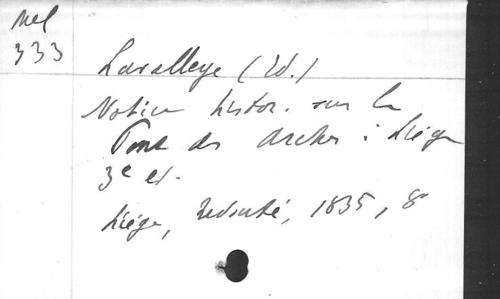 Mel
333
Lavalleye (Ed.)
Notice histor. sur le
Pont des Arches à Liège
3e ed.
Liége, Redouté, 1835, 8°